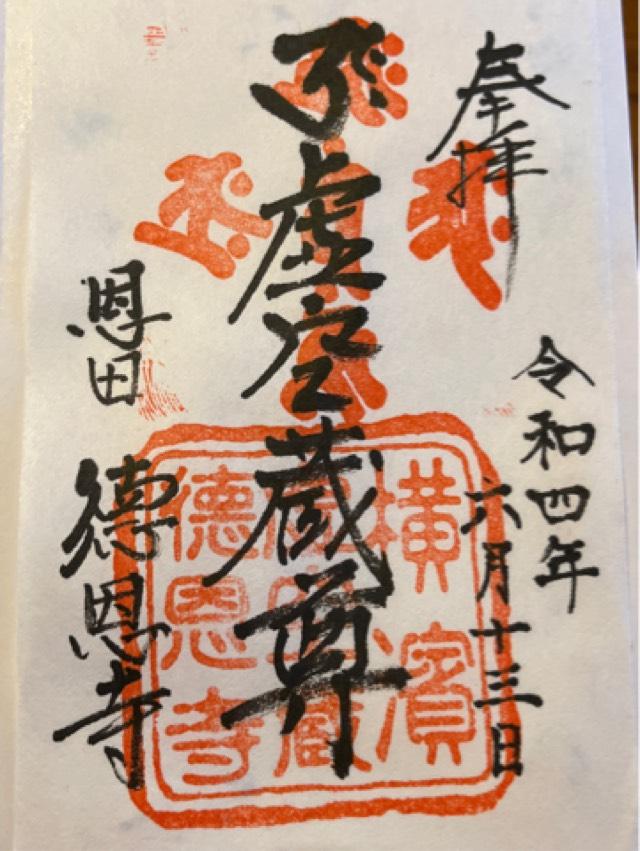 奉拝
令和四年
六月十三日
虚空蔵尊
恩田
徳恩寺
横濱
虚空蔵
徳恩寺